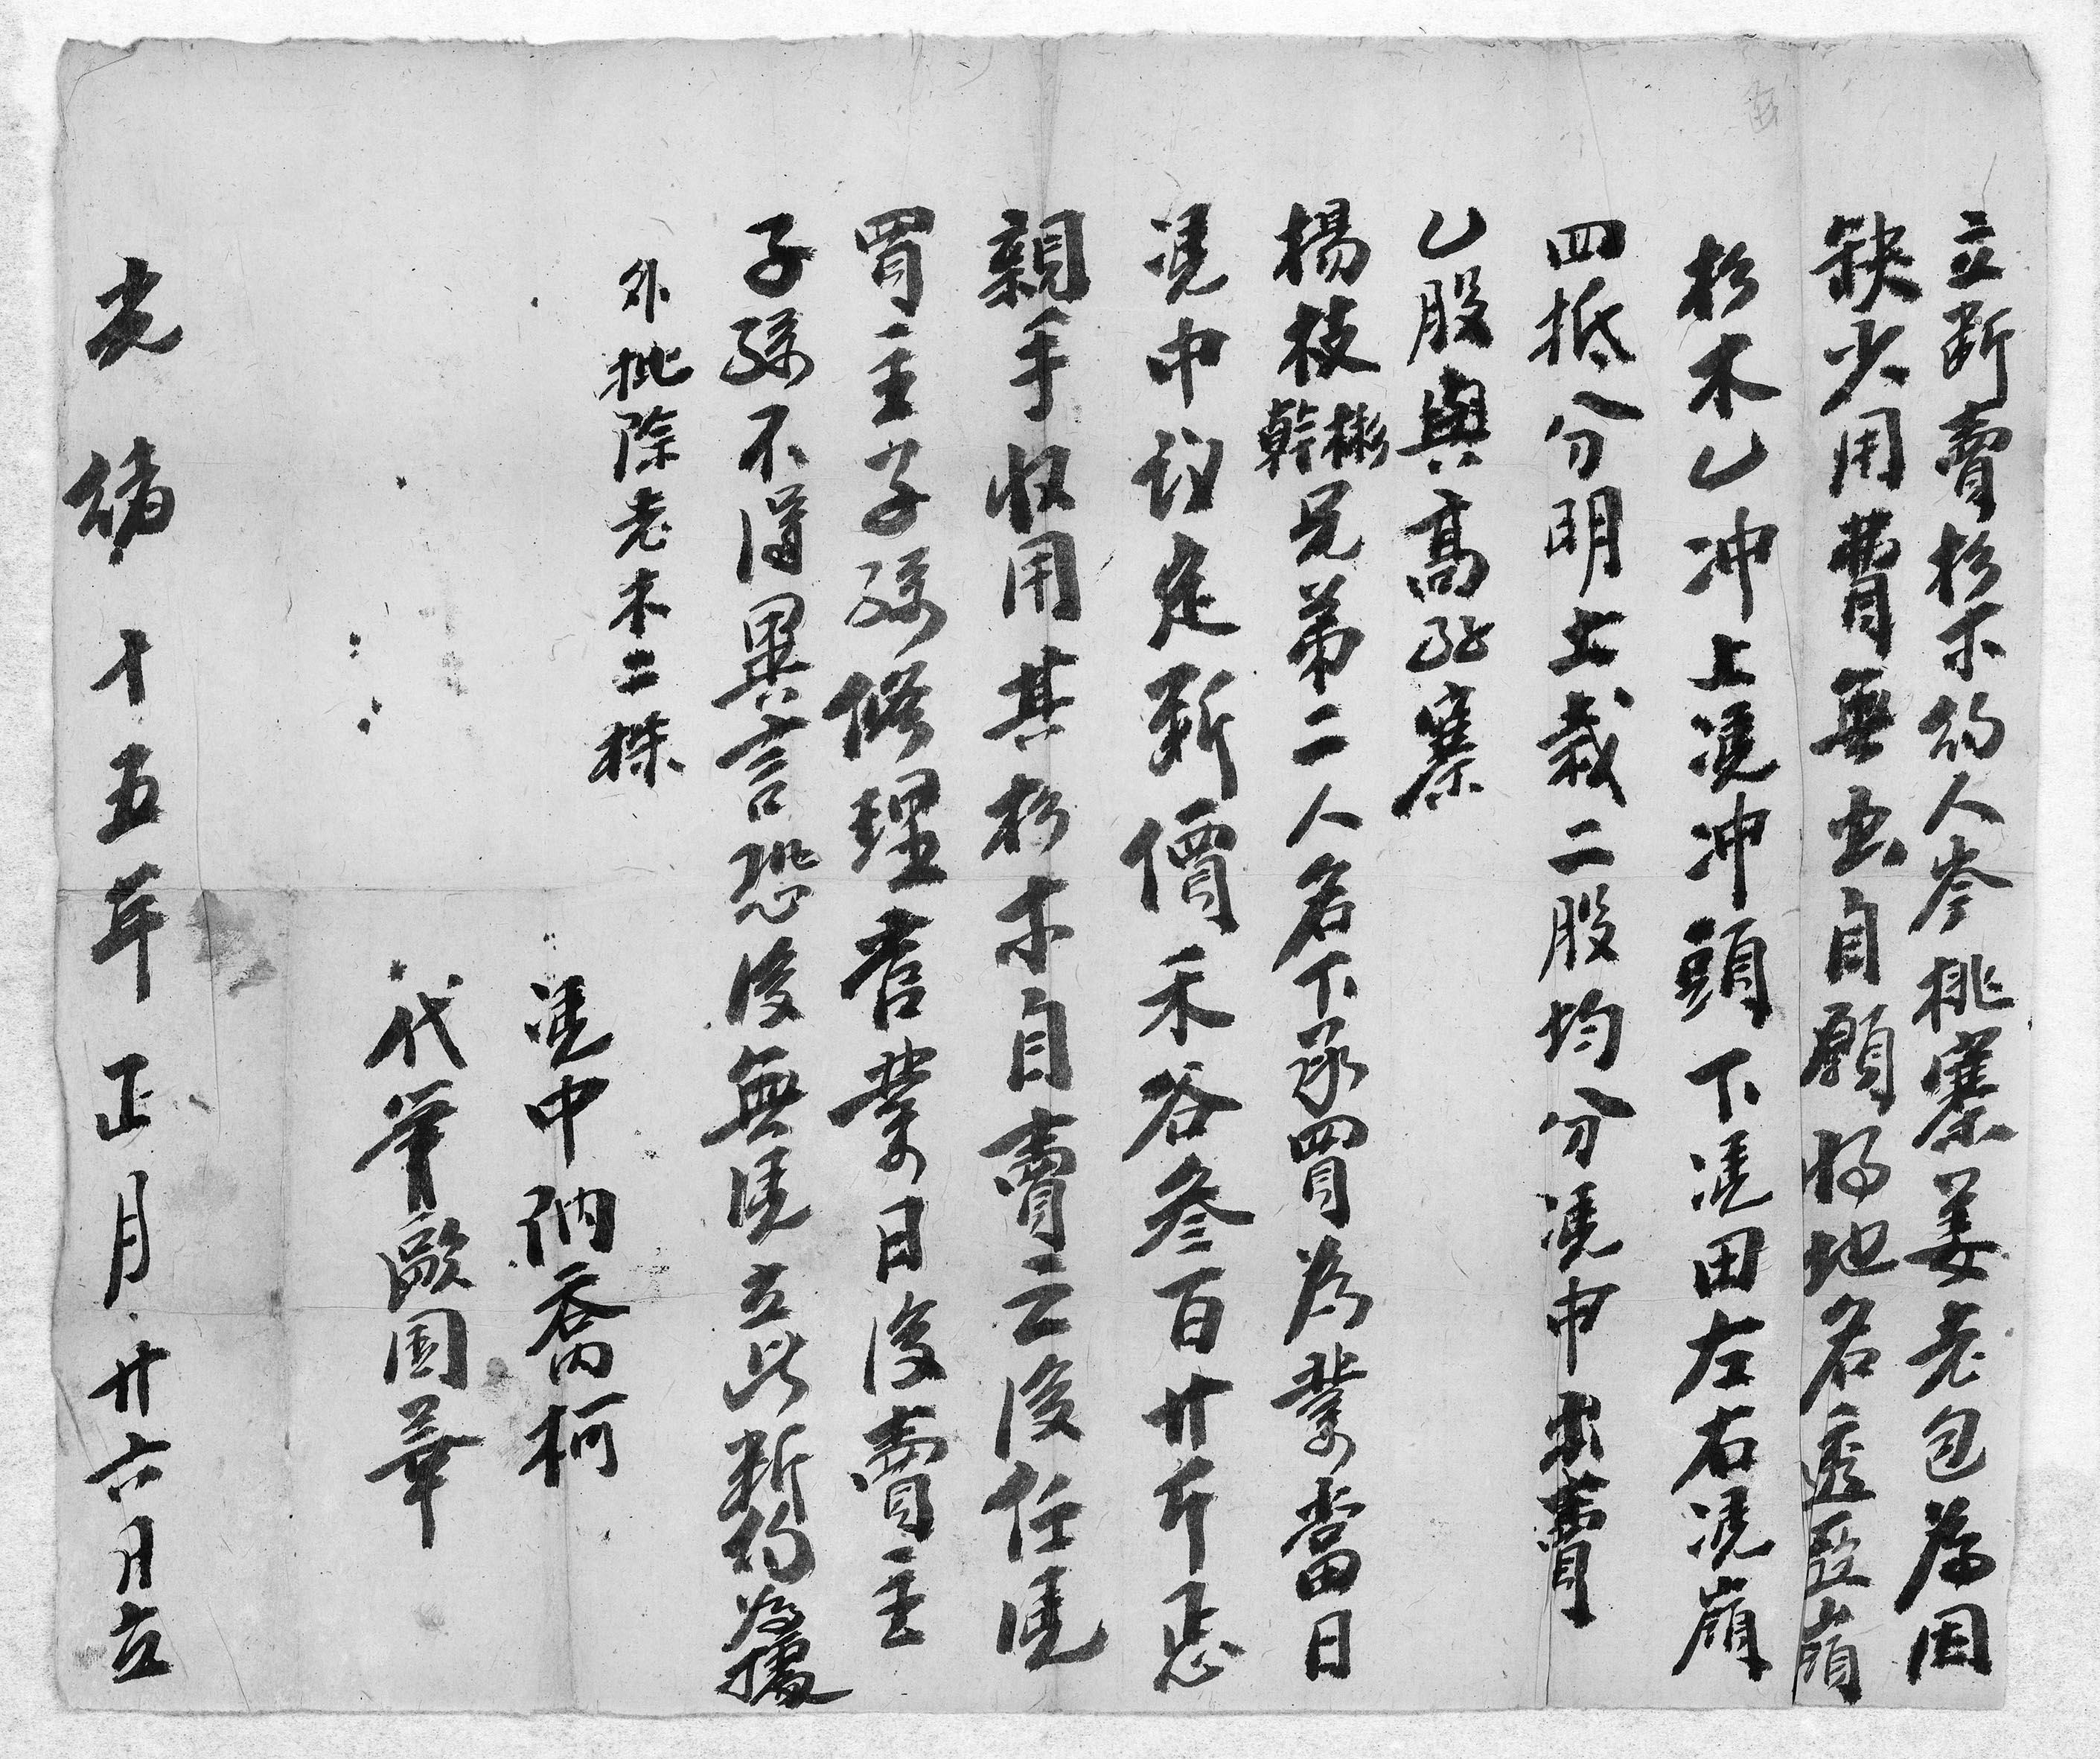 立斷賣杉木約人岑桃寨姜老包爲因
缺少用費無出自願將地名透亞嶺
杉木乚冲上凴冲頭下凴田左右凴嶺
四抵分明土栽二股均分凴中出賣
乚股與高迯寨
楊枝彬幹兄弟二人名下承買为業當日
凴中议定斷價禾谷叁百廿斤正
親手收用其杉木自賣之後任凴
買主子孫修理管業日後賣主
子孫不得異言恐後無凴立此斷約为據
外批除老木二株
凴中 納喬柯
代筆歐国華
光緒十五年正月廿六日立